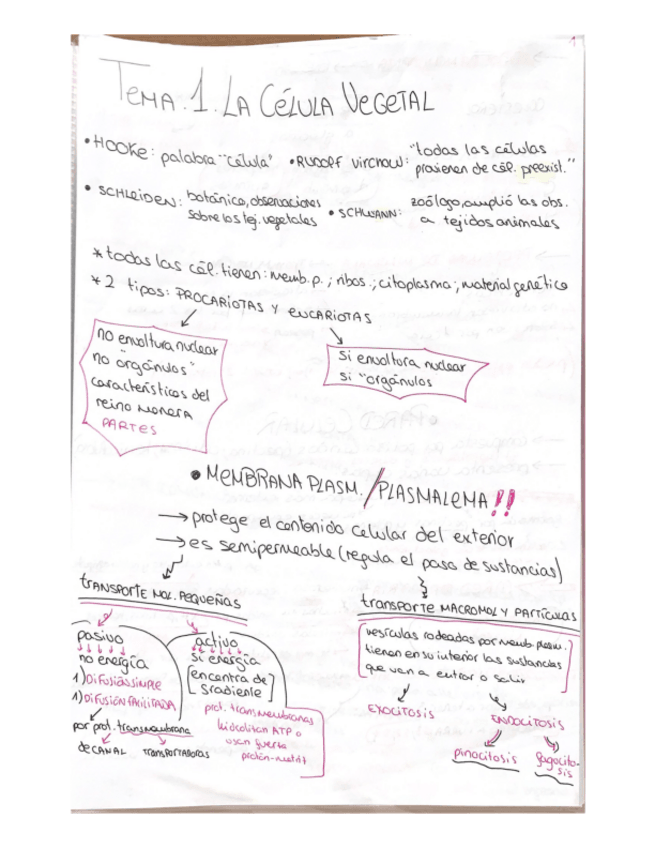 1
TEMA.1. LA CÉLULA VEGETAL
• HOOKE: palabra "célula" • RUDOLF VIRCHOW: "todas las células
provienen de cél. preexist."
• SCHLEIDEN: botánico, observaciones
sobre los tej. vegetales
• SCHWANN: zoólogo, amplió las obs.
a tejidos animales
* todas las cél. tienen: memb.p.; ribos.; citoplasma; material genético
* 2 tipos: PROCARIOTAS Y EUCARIOTAS
no envoltura nuclear
no "orgánulos"
características del
reino MONERA
PARTES
si envoltura nuclear
si "orgánulos
• MEMBRANA PLASM./PLASMALEMA!!
→ protege el contenido celular del exterior
→ es semipermeable (regula el paso de sustancias)
TRANSPORTE MOL. PEQUEÑAS
pasivo
no energía
1) DIFUSIÓN SIMPLE
1) DIFUSIÓN FACILITADA
por prot. transmembrana
de CANAL TRANSPORTADORAS
activo
si energía
[encontra de
gradiente]
prot. transmembranas
hidrolitan ATP o
usan fuerza
protón-motriz
TRANSPORTE MACROMOL Y PARTÍCULAS
vesículas rodeadas por memb. plasm.
tienen en su interior las sustancias
que van a entrar o salir
EXOCITOSIS
ENDOCITOSIS
pinocitosis
fagocito-
sis